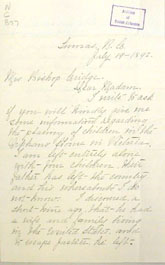 N
C
B57
Comox, B.C.
July 19th 1895.
Mrs Bishop Cridge,
Dear Madam
I write to ask
if you will kindly give me
some information regarding
the placing of children in the
Orphans Home in Victoria.
I am left entirely alone
with four children. Their
father has left the country
and his whereabouts I do
not know. I discovered a
short time ago that he had
a wife and family living
in the United States, and
to escape justice he left.